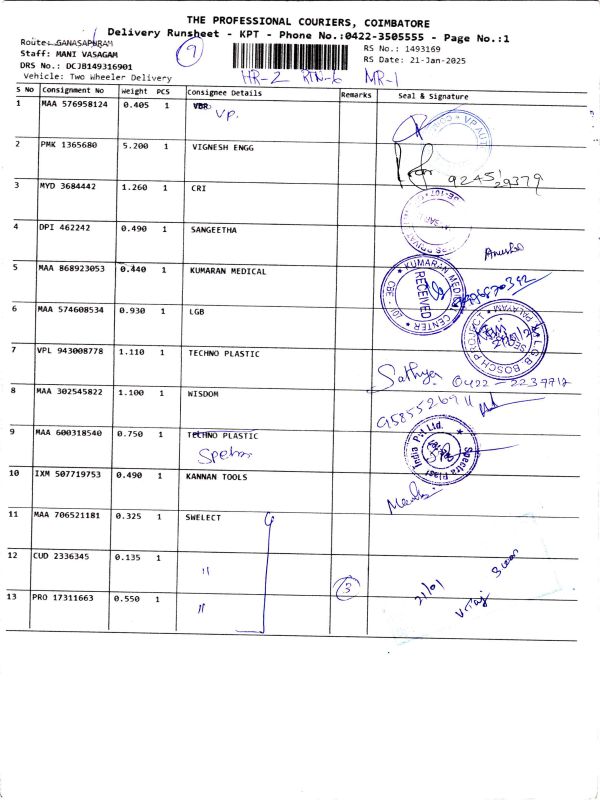 THE PROFESSIONAL COURIERS, COIMBATORE
Delivery Runsheet - KPT - Phone No.:0422-3505555 - Page No.:1
Route: GANASAPURAM
Staff: MANI VASAGAM
DRS No.: DCJB149316901
Vehicle: Two Wheeler Delivery
9
RS No.: 1493169
RS Date: 21-Jan-2025
HR-2 RTN-6 MR-1
S No Consignment No Weight PCS Consignee Details Remarks Seal & Signature
1 MAA 576958124 0.405 1 VBR
VP.
2 PMK 1365680 5.200 1 VIGNESH ENGG
9245129379
3 MYD 3684442 1.260 1 CRI
4 DPI 462242 0.490 1 SANGEETHA
5 MAA 868923053 0.440 1 KUMARAN MEDICAL
KUMARAN MEDICAL CENTER
RECEIVED
6 MAA 574608534 0.930 1 LGB
L.G.B. BOSCH PROJECT
7 VPL 943008778 1.110 1 TECHNO PLASTIC
Sathya 0422-2239712
8 MAA 302545822 1.100 1 WISDOM
9 MAA 600318540 0.750 1 TECHNO PLASTIC
Spectra Plast India P. Ltd.
10 IXM 507719753 0.490 1 KANNAN TOOLS
11 MAA 706521181 0.325 1 SWELECT
12 CUD 2336345 0.135 1 "
3
21/01
13 PRO 17311663 0.550 1 "